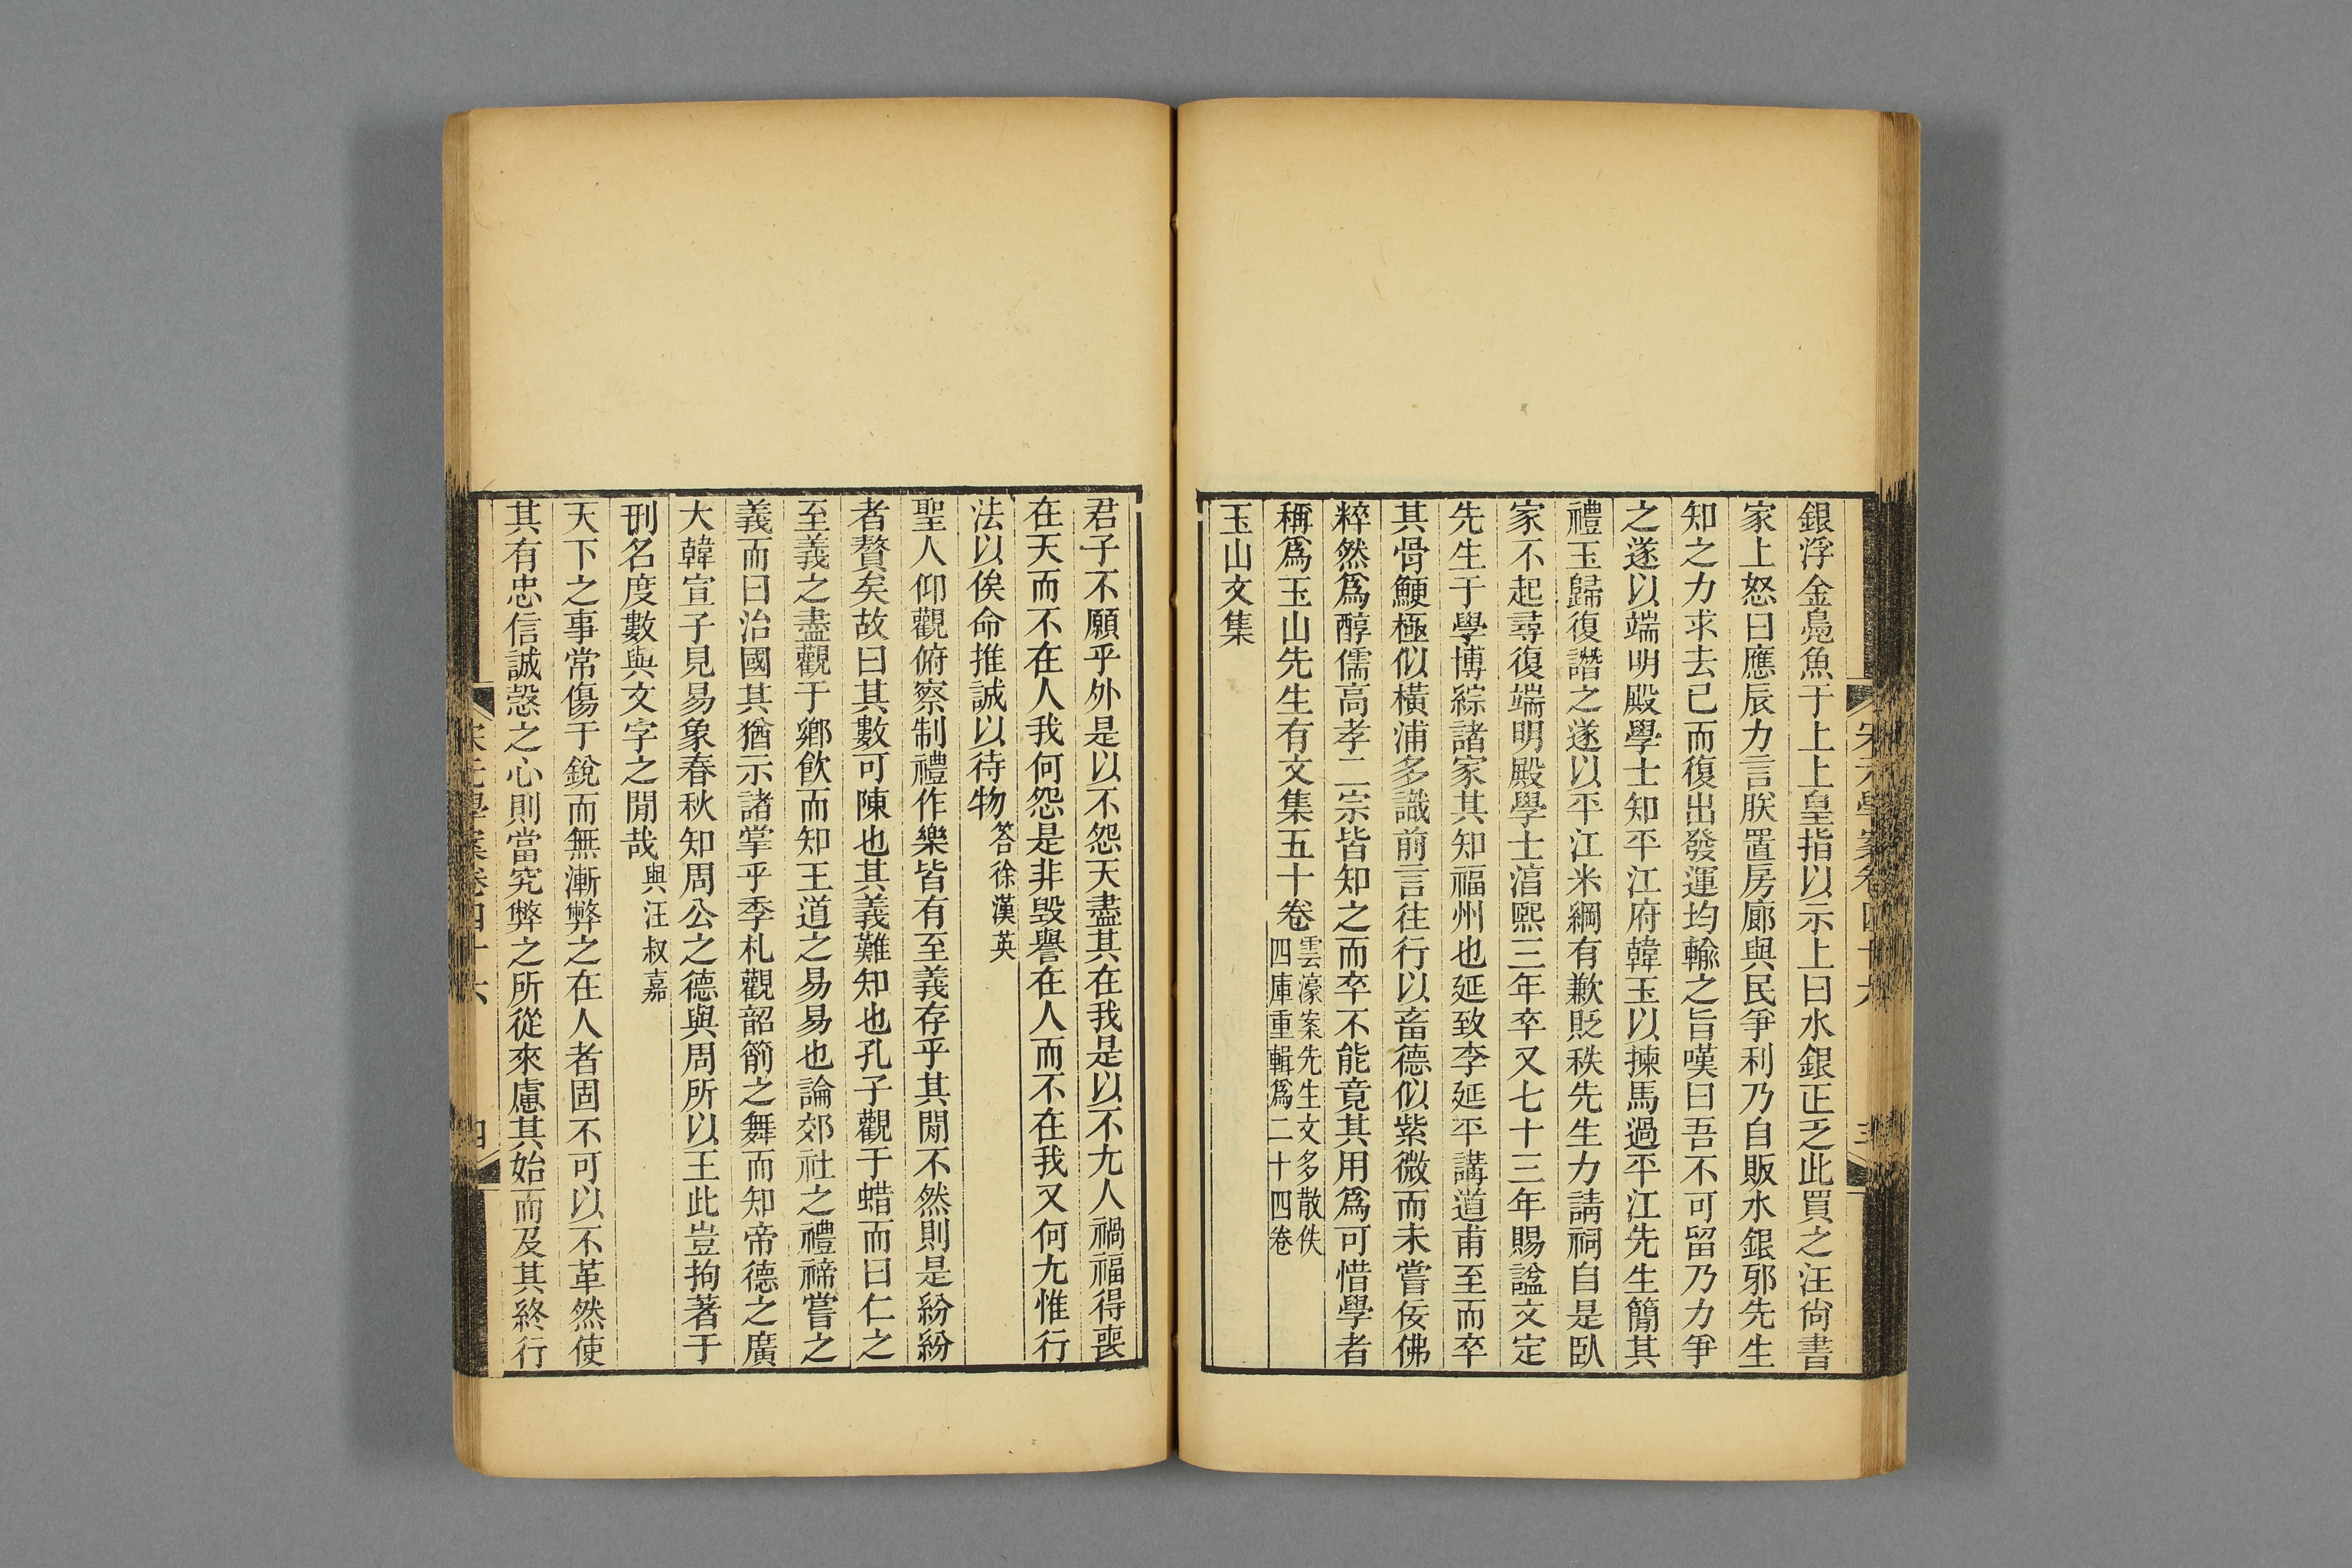 銀浮金鳧魚于上上皇指以示上曰水銀正乏此買之汪尙書
家上怒曰應辰力言朕置房廊與民爭利乃自販水銀邪先生
知之力求去已而復出發運均輸之旨嘆曰吾不可留乃力爭
之遂以端明殿學士知平江府韓玉以揀馬過平江先生簡其
禮玉歸復譖之遂以平江米綱有歉貶秩先生力請祠自是臥
家不起尋復端明殿學士淳熙三年卒又七十三年賜諡文定
先生于學博綜諸家其知福州也延致李延平講道甫至而卒
其骨鯁極似橫浦多識前言往行以畜德似紫微而未嘗佞佛
粹然爲醇儒高孝二宗皆知之而卒不能竟其用爲可惜學者
稱爲玉山先生有文集五十卷
雲濠案先生文多散佚
四庫重輯爲二十四卷
玉山文集
君子不願乎外是以不怨天盡其在我是以不尢人禍福得喪
在天而不在人我何怨是非毀譽在人而不在我又何尢惟行
法以俟命推誠以待物答徐漢英
聖人仰觀俯察制禮作樂皆有至義存乎其閒不然則是紛紛
者贅矣故曰其數可陳也其義難知也孔子觀于蜡而曰仁之
至義之盡觀于鄉飮而知王道之易易也論郊社之禮禘嘗之
義而曰治國其猶示諸掌乎季札觀韶箾之舞而知帝德之廣
大韓宣子見易象春秋知周公之德與周所以王此豈拘著于
刑名度數與文字之閒哉與汪叔嘉
天下之事常傷于銳而無漸弊之在人者固不可以不革然使
其有忠信誠愨之心則當究弊之所從來慮其始而及其終行
宋元學案卷四十六
四